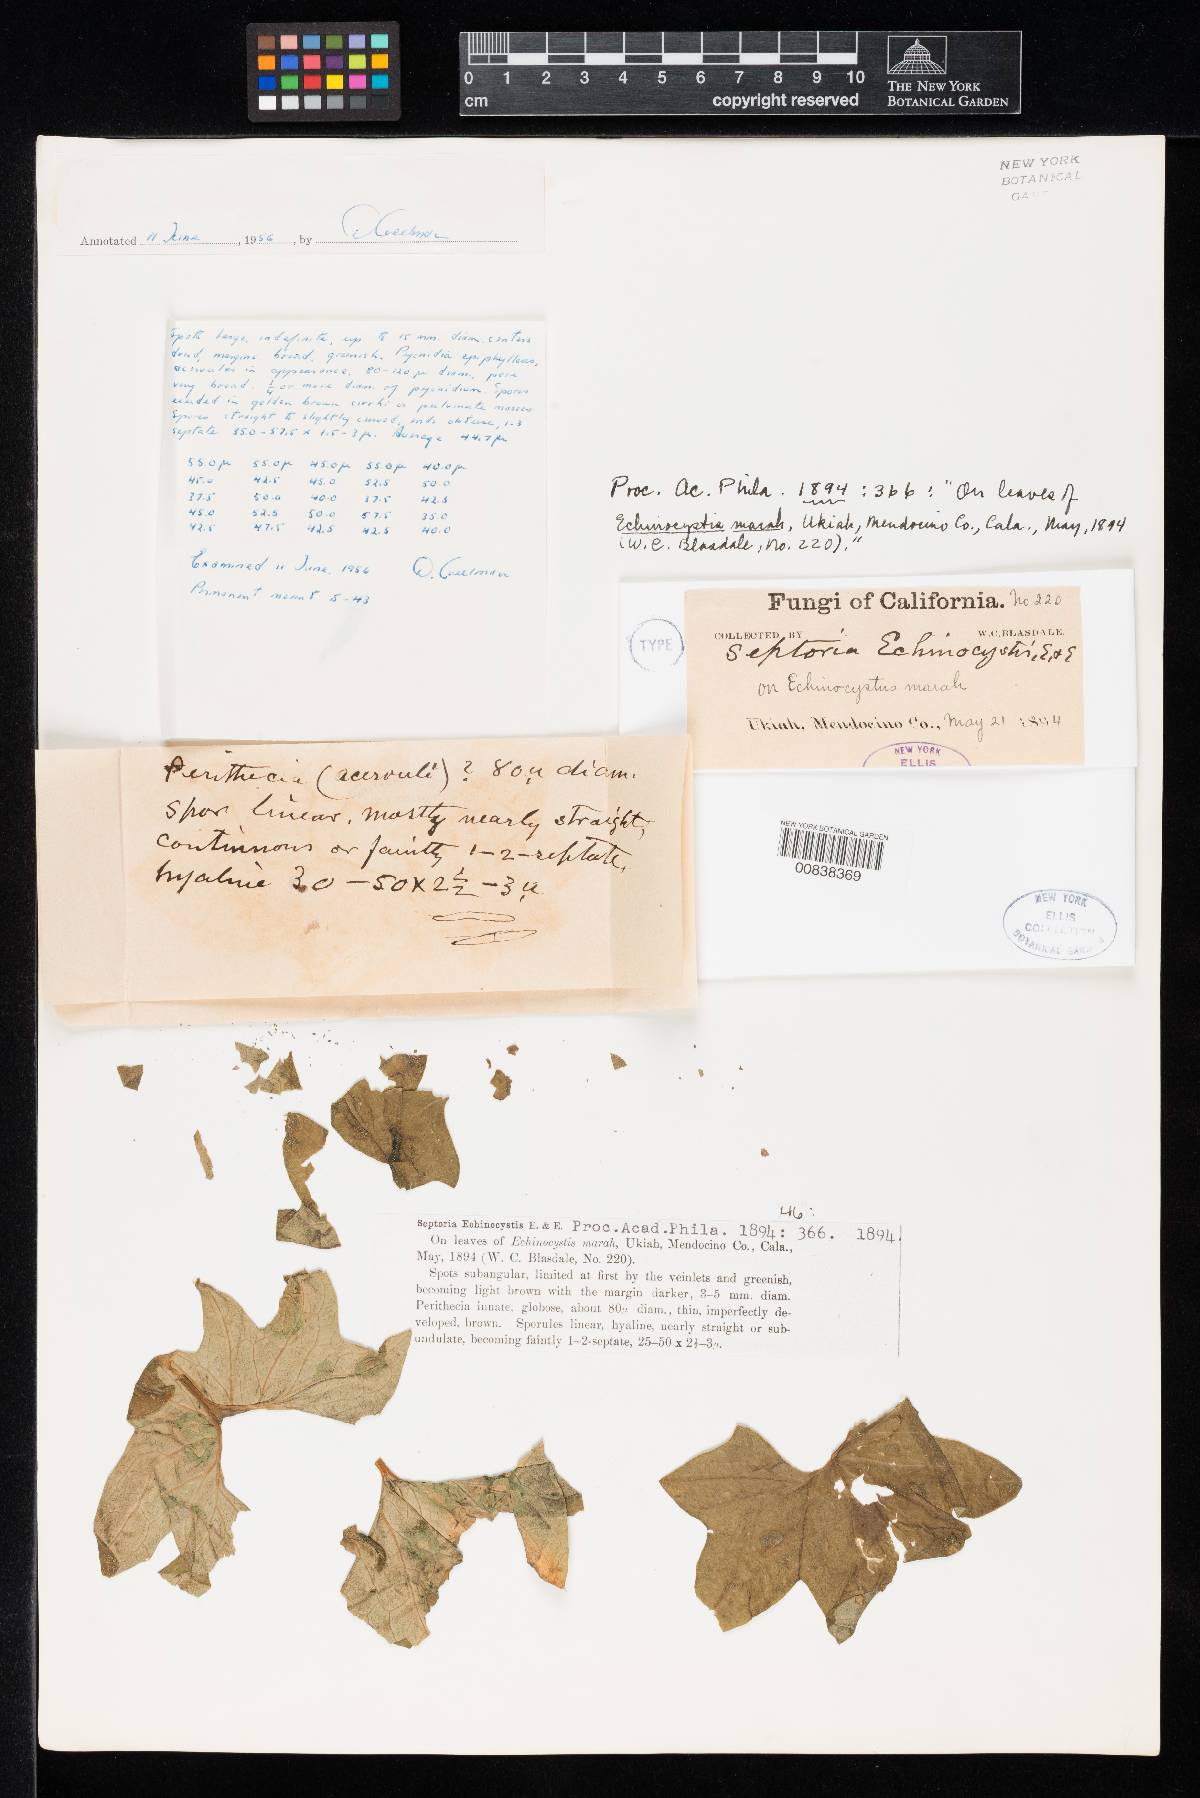 0 1 2 3 4 5 6 7 8 9 10
cm
copyright reserved
THE NEW YORK
BOTANICAL GARDEN
NEW YORK
BOTANICAL
Annotated 11 June, 1956, by
Spots large, indefinite, up to 15 mm. diam. centers
dead, margins broad, greenish. Pycnidia epiphyllous,
in appearance, 80-120 µ diam., pore
very broad. ¼ or more diam. of pycnidium. Spores
exuded in golden brown cirrhi or pulvinate masses
Spores straight to slightly curved, ends obtuse, 1-3
septate 35.0-57.5 x 1.5-3 µ. Average 44.7 µ
55.0 µ 55.0 µ 45.0 µ 55.0 µ 40.0 µ
45.0 42.5 45.0 52.5 50.0
37.5 50.0 40.0 37.5 42.5
45.0 52.5 50.0 57.5 35.0
42.5 47.5 42.5 42.5 40.0
Examined 11 June 1956
Permanent mount S-43
Proc. Ac. Phila. 1894: 366: "On leaves of
Echinocystis marah, Ukiah, Mendocino Co., Cala., May, 1894
(W. C. Blasdale, No. 220)."
TYPE
Fungi of California. No 220
COLLECTED BY W. C. BLASDALE.
Septoria Echinocystis, E. & E
on Echinocystus marah
Ukiah, Mendocino Co., May 21 1894
NEW YORK
ELLIS
Perithecia (acervuli)? 80µ diam.
Spor linear, mostly nearly straight,
continuous or faintly 1-2-septate,
hyaline 30-50x2½-3µ
NEW YORK BOTANICAL GARDEN
00838369
NEW YORK
ELLIS
COLLECTION
BOTANICAL GARDEN
46:
Septoria Echinocystis E. & E. Proc.Acad.Phila. 1894: 366. 1894.
On leaves of Echinocystis marah, Ukiah, Mendocino Co., Cala.,
May, 1894 (W. C. Blasdale, No. 220).
Spots subangular, limited at first by the veinlets and greenish,
becoming light brown with the margin darker, 3–5 mm. diam.
Perithecia innate, globose, about 80µ diam., thin, imperfectly de-
veloped, brown. Sporules linear, hyaline, nearly straight or sub-
undulate, becoming faintly 1–2-septate, 25–50 x 2½–3µ.